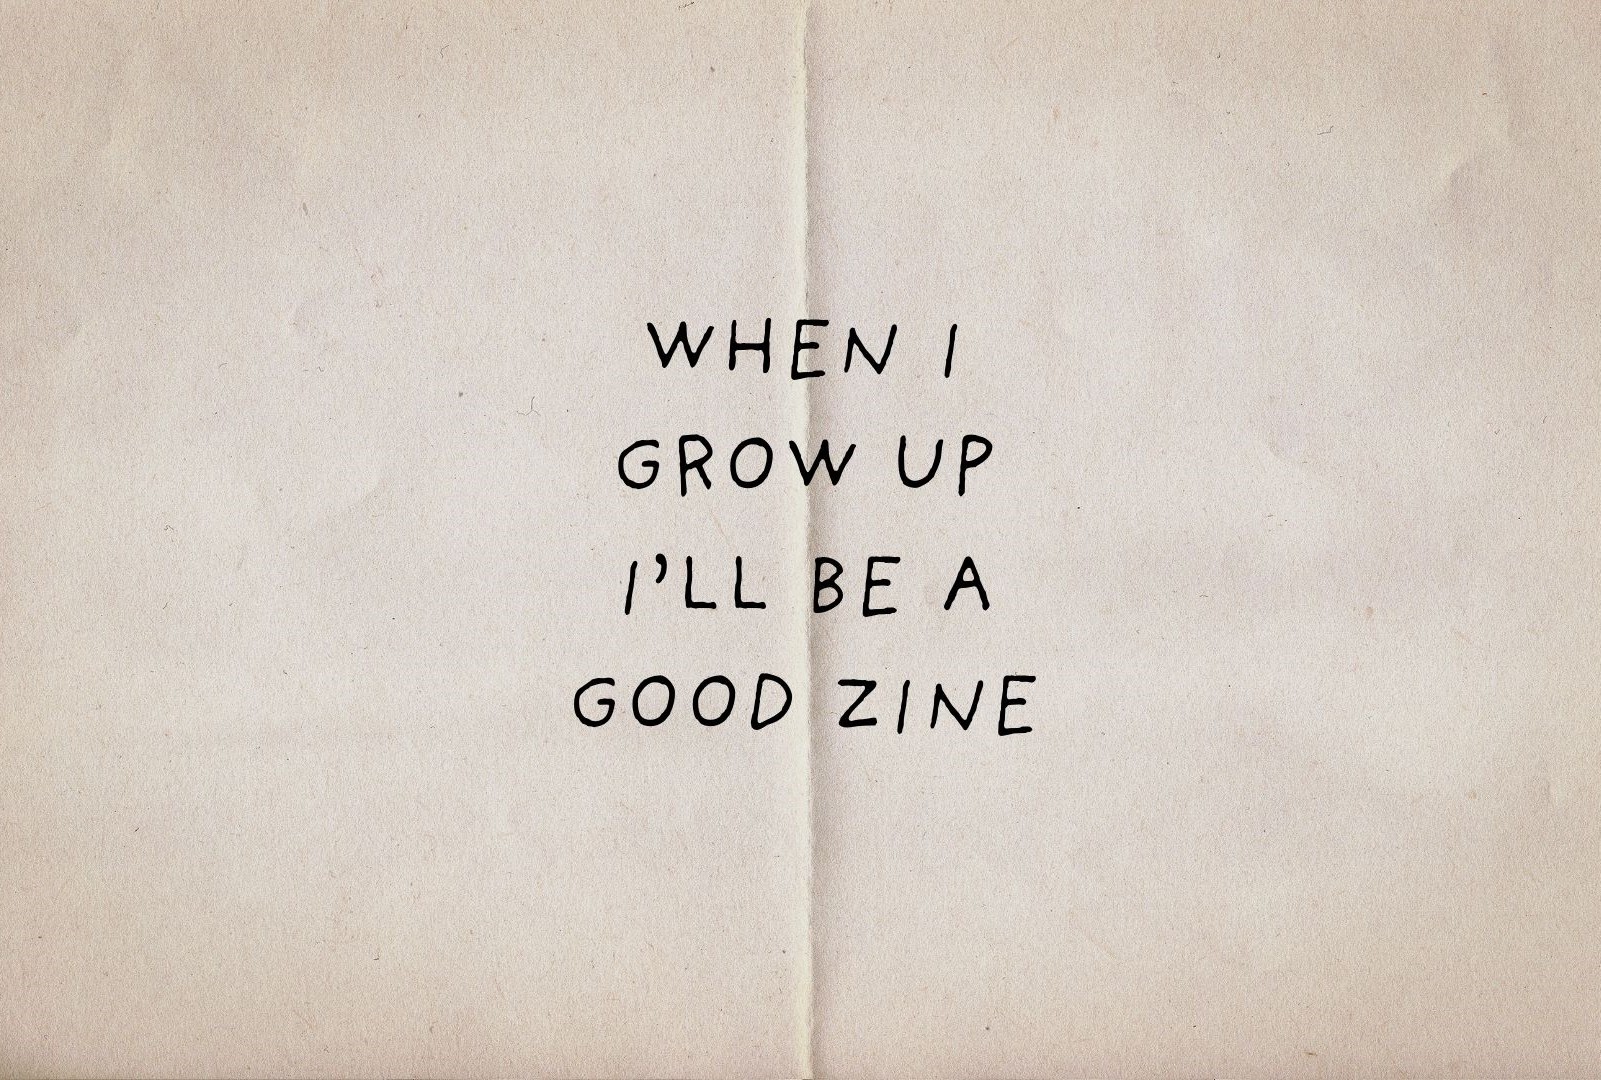 WHEN I
GROW UP
I'LL BE A
GOOD ZINE